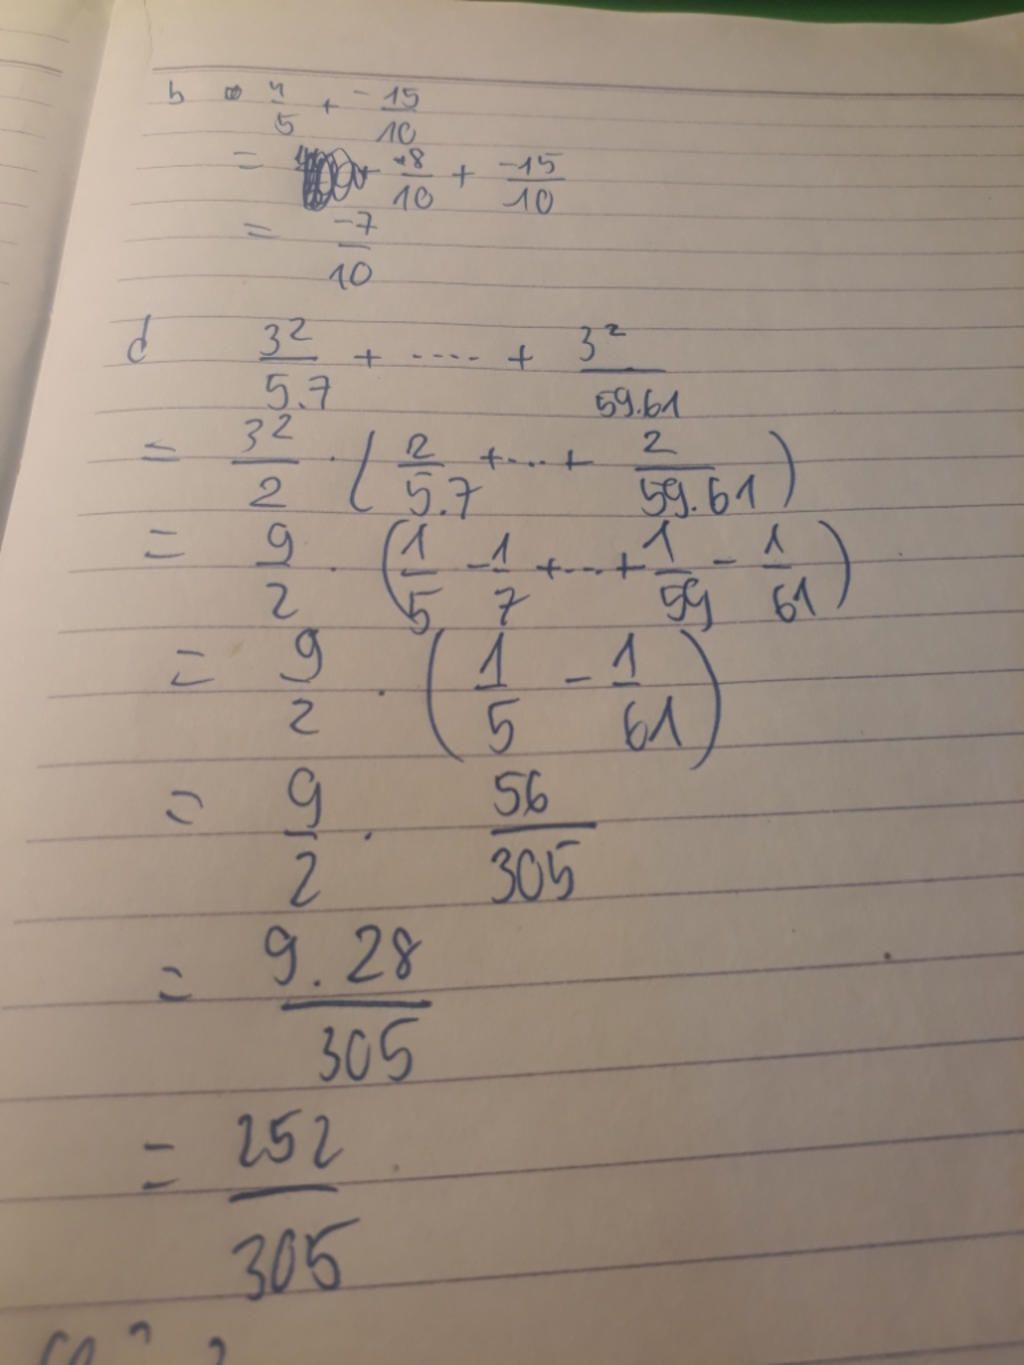 b 4/5 + -15/10
= 8/10 + -15/10
= -7/10
d 3²/5.7 + .... + 3²/59.61
= 3²/2 . (2/5.7 + ... + 2/59.61)
= 9/2 . (1/5 - 1/7 + ... + 1/59 - 1/61)
= 9/2 . (1/5 - 1/61)
= 9/2 . 56/305
= 9.28/305
= 252/305